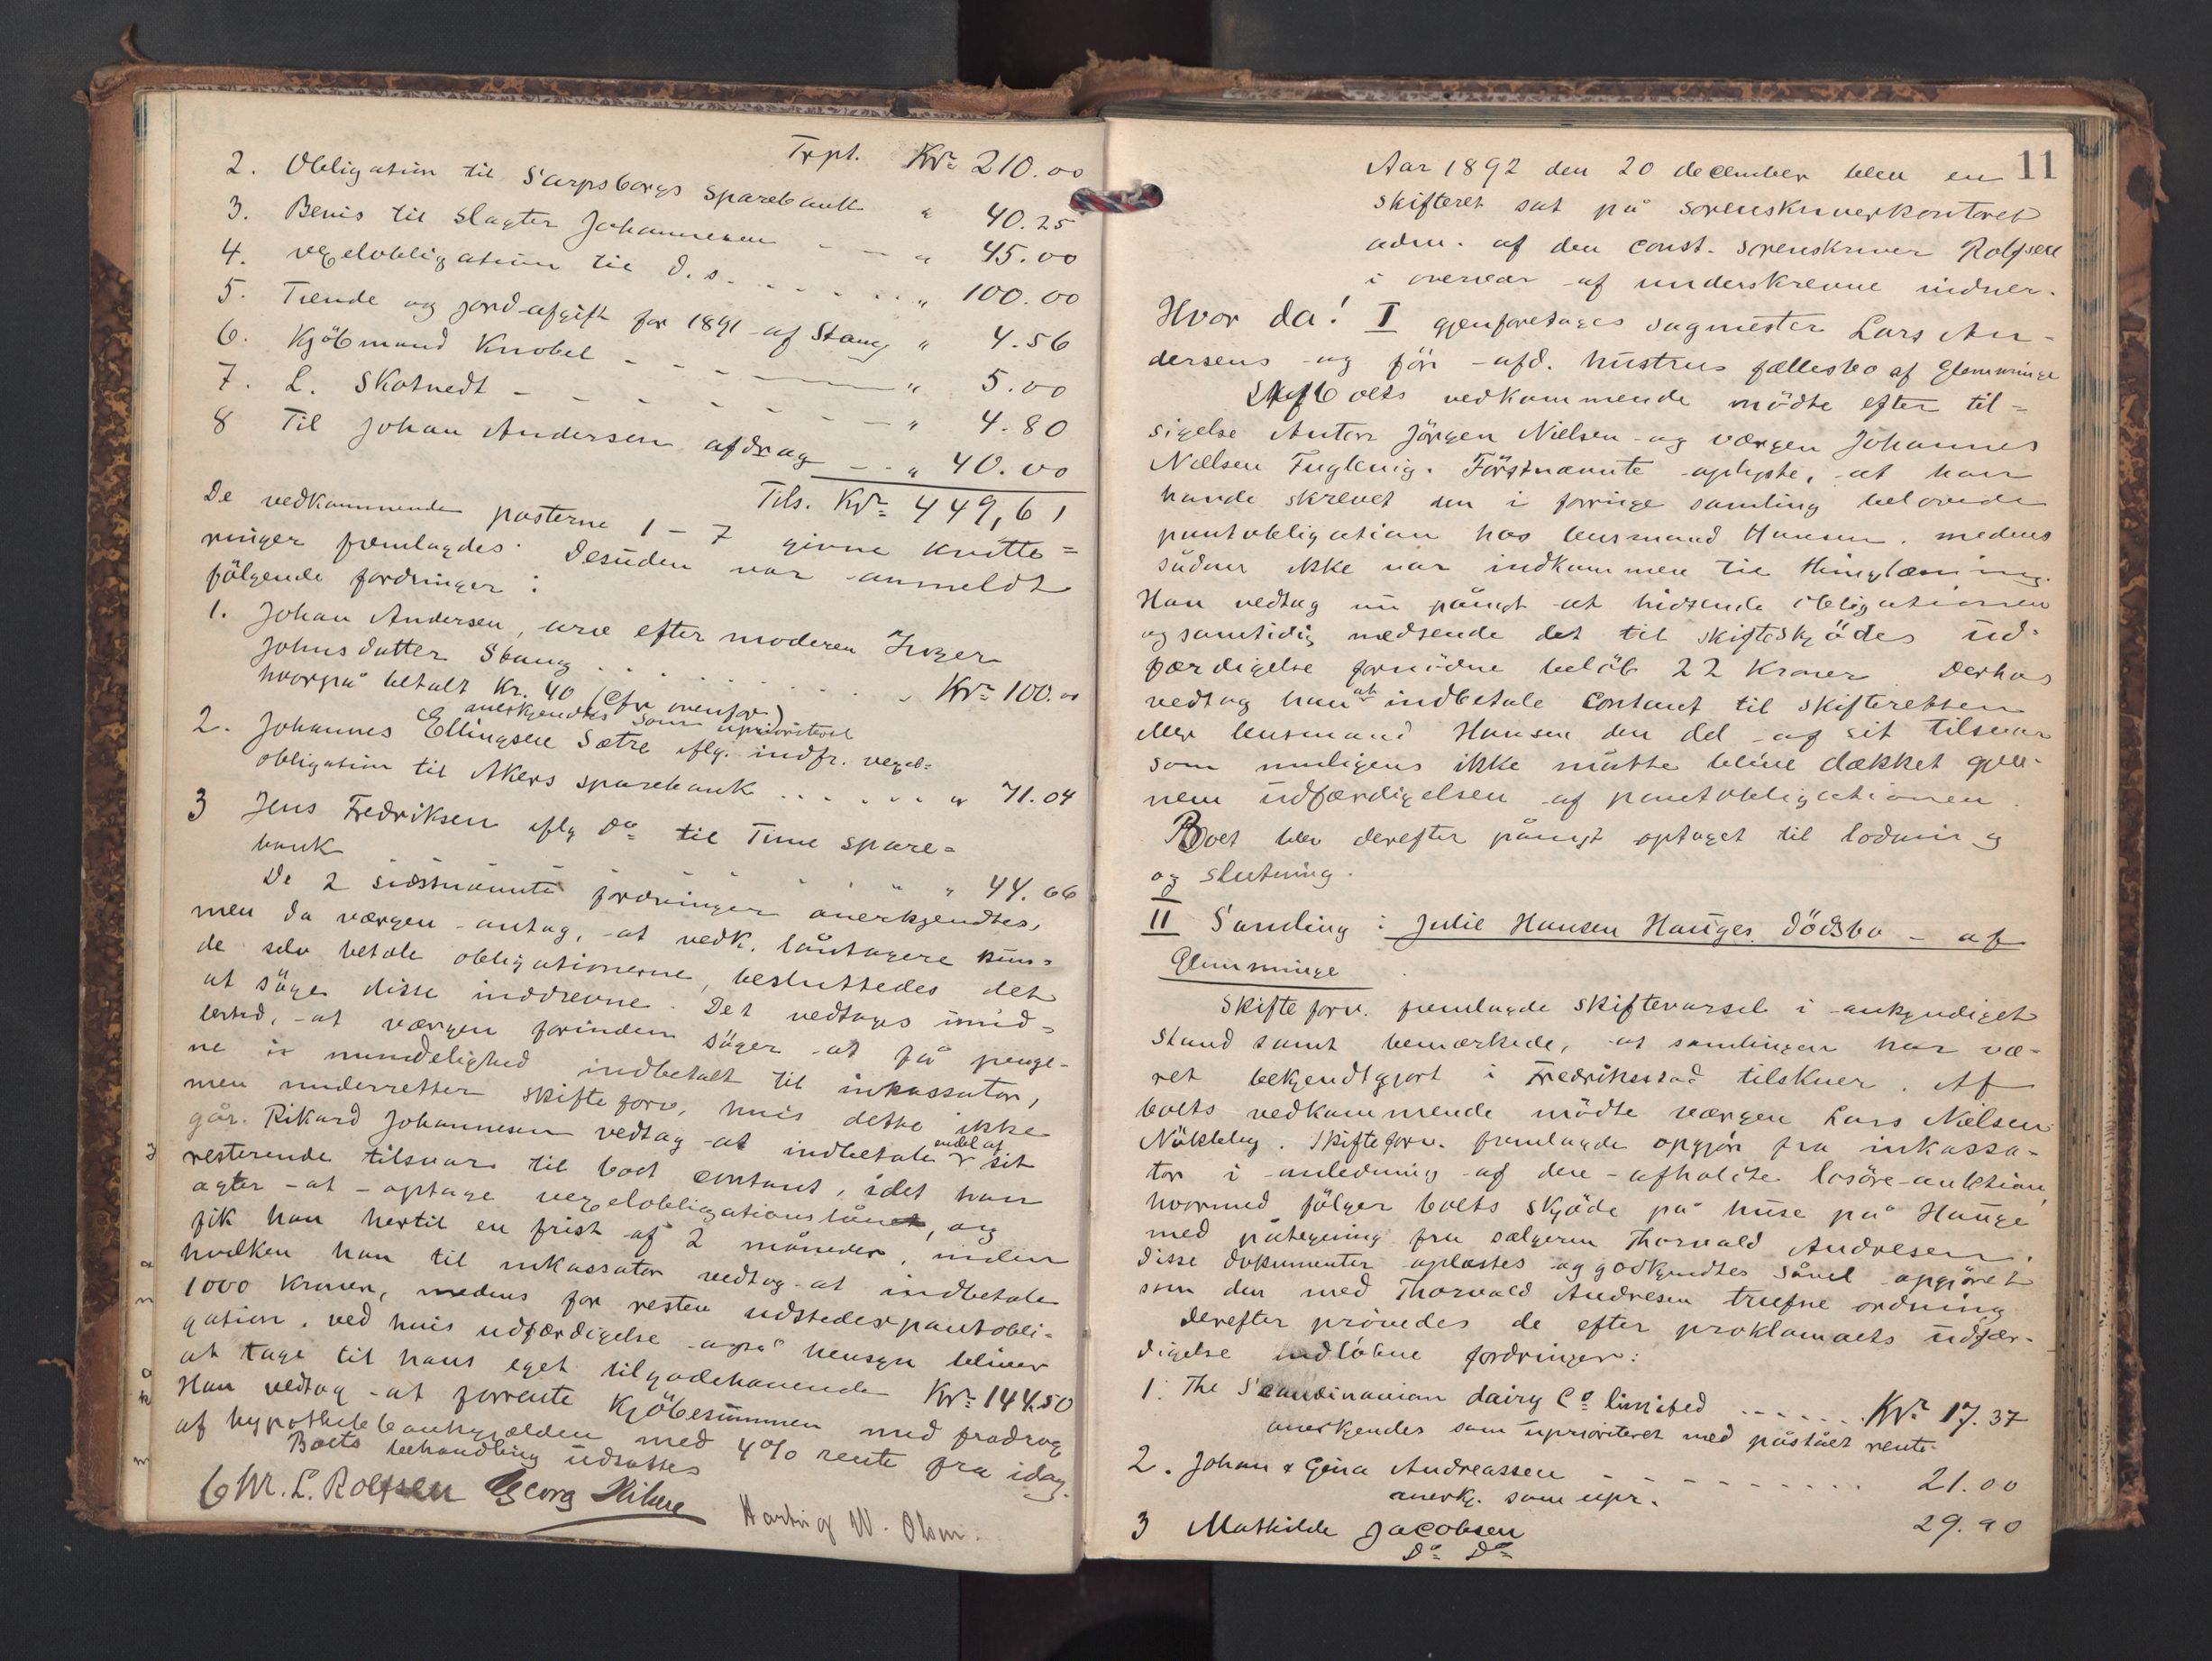 Trpt. Kr. 210.00
2. Obligation til Sarpsborgs sparebank " 40.25
3. Bevis til slagter Johannesen - - " 45.00
4. vexelobligation til d. s. . . . . . . " 100.00
5. Tiende og jordafgift for 1891 af Stang " 4.56
6. Kjöbmand Knobel - - - - " 5.00
7. L. Skotvedt - - - - - - - " 4.80
8 Til Johan Andersen afdrag - - " 40.00
Tils. Kr. 449,61
De vedkommende posterne 1 - 7 givne kvitte=
ringer fremlagdes. Desuden var anmeldt
fölgende fordringer:
1. Johan Andersen, arv efter moderen Inger
Johnsdatter Stang . . . . . . . Kr. 100.00
hvorpå betalt Kr. 40 (Cfr ovenfor)
anerkjendtes som uprioriteret
2. Johannes Ellingsen Sætre iflg. indfr. vexel=
obligation til Akers sparebank . . . . . . " 71.04
3 Jens Fredriksen iflg do til Tune spare=
bank . . . " " 44.66
De 2 sidstnævnte fordringer anerkjendtes,
men da værgen antog, at vedk. låntagere kun=
de selv betale obligationerne, besluttedes det
at söge disse inddrevne. Det vedtoges imid=
lertid, at værgen forinden söger at få penge-
ne i mindelighed indbetalt til inkassator,
men underretter skifteforv, hvis dette ikke
går. Rikard Johannesen vedtog at indbetale endel af sit
resterende tilsvar til boet contant, idet han
agter at optage vexelobligationslånet, og
fik han hertil en frist af 2 måneder, inden
hvilken han til inkassator vedtog at indbetale
1000 kroner, medens for resten udstedes pantobli-
gation, ved hvis udfærdigelse også hensyn bliver
at tage til hans eget tilgodehavende Kr. 144.50
Han vedtog at forrente kjöbesummen med fradrag
af hypothekbankgjælden med 4% rente fra idag.
Boets behandling udsattes
C M. L. Rolfsen Georg Hilsen Hartvig W. Olsen.
11
Aar 1892 den 20 december blev en
skifteret sat på sorenskriverkontoret
adm. af den const. sorenskriver Rolfsen
i overvær af underskrevne vidner.
Hvor da! I gjenforetages sagmester Lars An-
dersens og för afd. hustrus fællesbo af Glemminge
Boets vedkommende mödte efter til=
sigelse Anton Jörgen Nielsen og værgen Johannes
Nielsen Fuglevig. Förstnævnte oplyste, at han
havde skrevet um i forrige samling belovede
pantobligation hos lensmand Hansen, medens
sådan ikke var indkommen til thinglæsning.
Han vedtog nu påny at hidsende obligationen
og samtidig medsende det til skifteskjödes ud-
færdigelse fornödne belöb 22 kroner. Derhos
vedtog han at indbetale contant til skifteretten
eller lensmand Hansen den del af sit tilsvar
som muligens ikke måtte blive dækket gjen-
nem udfærdigelsen af pantobligationen.
Boet blev derefter påny optaget til lodning
og slutning.
II Samling i Julie Hansen Hauges dödsbo - af
Glemminge
Skifteforv. fremlagde skiftevarsel i ankyndiget
stand samt bemærkede, at samlingen har væ-
ret bekjendtgjort i Fredriksstad tilskuer. Af
boets vedkommende mödte værgen Lars Nielsen
Nökleby. Skifteforv. fremlagde opgjör fra inkassa-
tor i anledning af den afholdte lösöre-auktion,
hvormed fölger boets skjöde på huse på Hauge
med påtegning fra sælgeren Thorvald Andresen.
Disse dokumenter oplæstes og godkjendtes såvel opgjöret
som den med Thorvald Andresen trufne ordning
Derefter prövedes de efter proklamaets udfær-
digelse indlöbne fordringer:
1. The Scandinavian dairy Co limited . . . . . . Kr. 17.37
anerkjendes som uprioriteret med påstået rente.
2. Johan & Gina Andreassen - - - - - . . . . . 21.00
anerkj. som upr.
3 Mathilde Jacobsen 29.90
Do Do